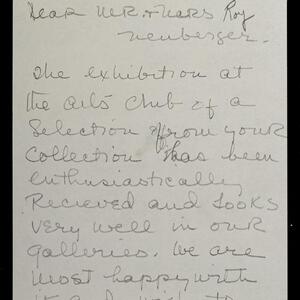 Dear MR + MRS Roy
Neuberger.
The exhibition at
the Arts Club of a
Selection from your
Collection has been
enthusiastically
Recieved and Looks
very well in our
galleries. We are
most happy with